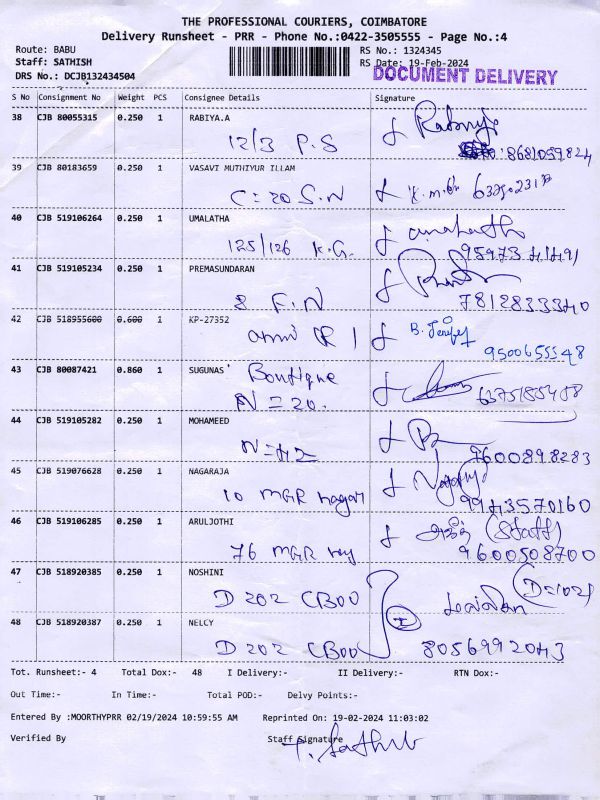 THE PROFESSIONAL COURIERS, COIMBATORE
Delivery Runsheet - PRR - Phone No.:0422-3505555 - Page No.:4
Route: BABU RS No.: 1324345
Staff: SATHISH RS Date: 19-Feb-2024
DRS No.: DCJB132434504 DOCUMENT DELIVERY
S No Consignment No Weight PCS Consignee Details Signature
38 CJB 80055315 0.250 1 RABIYA.A
12/3 P.S 8681059824
39 CJB 80183659 0.250 1 VASAVI MUTHIYUR ILLAM
C=20 S.N
40 CJB 519106264 0.250 1 UMALATHA
125/126 K.G. 9597341491
41 CJB 519105234 0.250 1 PREMASUNDARAN
8 F.N 7812833340
42 CJB 518955600 0.600 1 KP-27352
B. Jenifer
9500655548
43 CJB 80087421 0.860 1 SUGUNAS' Boutique
N=20. 6375185488
44 CJB 519105282 0.250 1 MOHAMEED
N=42 9600898283
45 CJB 519076628 0.250 1 NAGARAJA
10 MGR nagar 9943570160
46 CJB 519106285 0.250 1 ARULJOTHI
(Staff)
76 MGR 9600508700
47 CJB 518920385 0.250 1 NOSHINI
D 202
48 CJB 518920387 0.250 1 NELCY
D 202 8056992043
Tot. Runsheet:- 4 Total Dox:- 48 I Delivery:- II Delivery:- RTN Dox:-
Out Time:- In Time:- Total POD:- Delvy Points:-
Entered By :MOORTHYPRR 02/19/2024 10:59:55 AM Reprinted On: 19-02-2024 11:03:02
Verified By Staff Signature